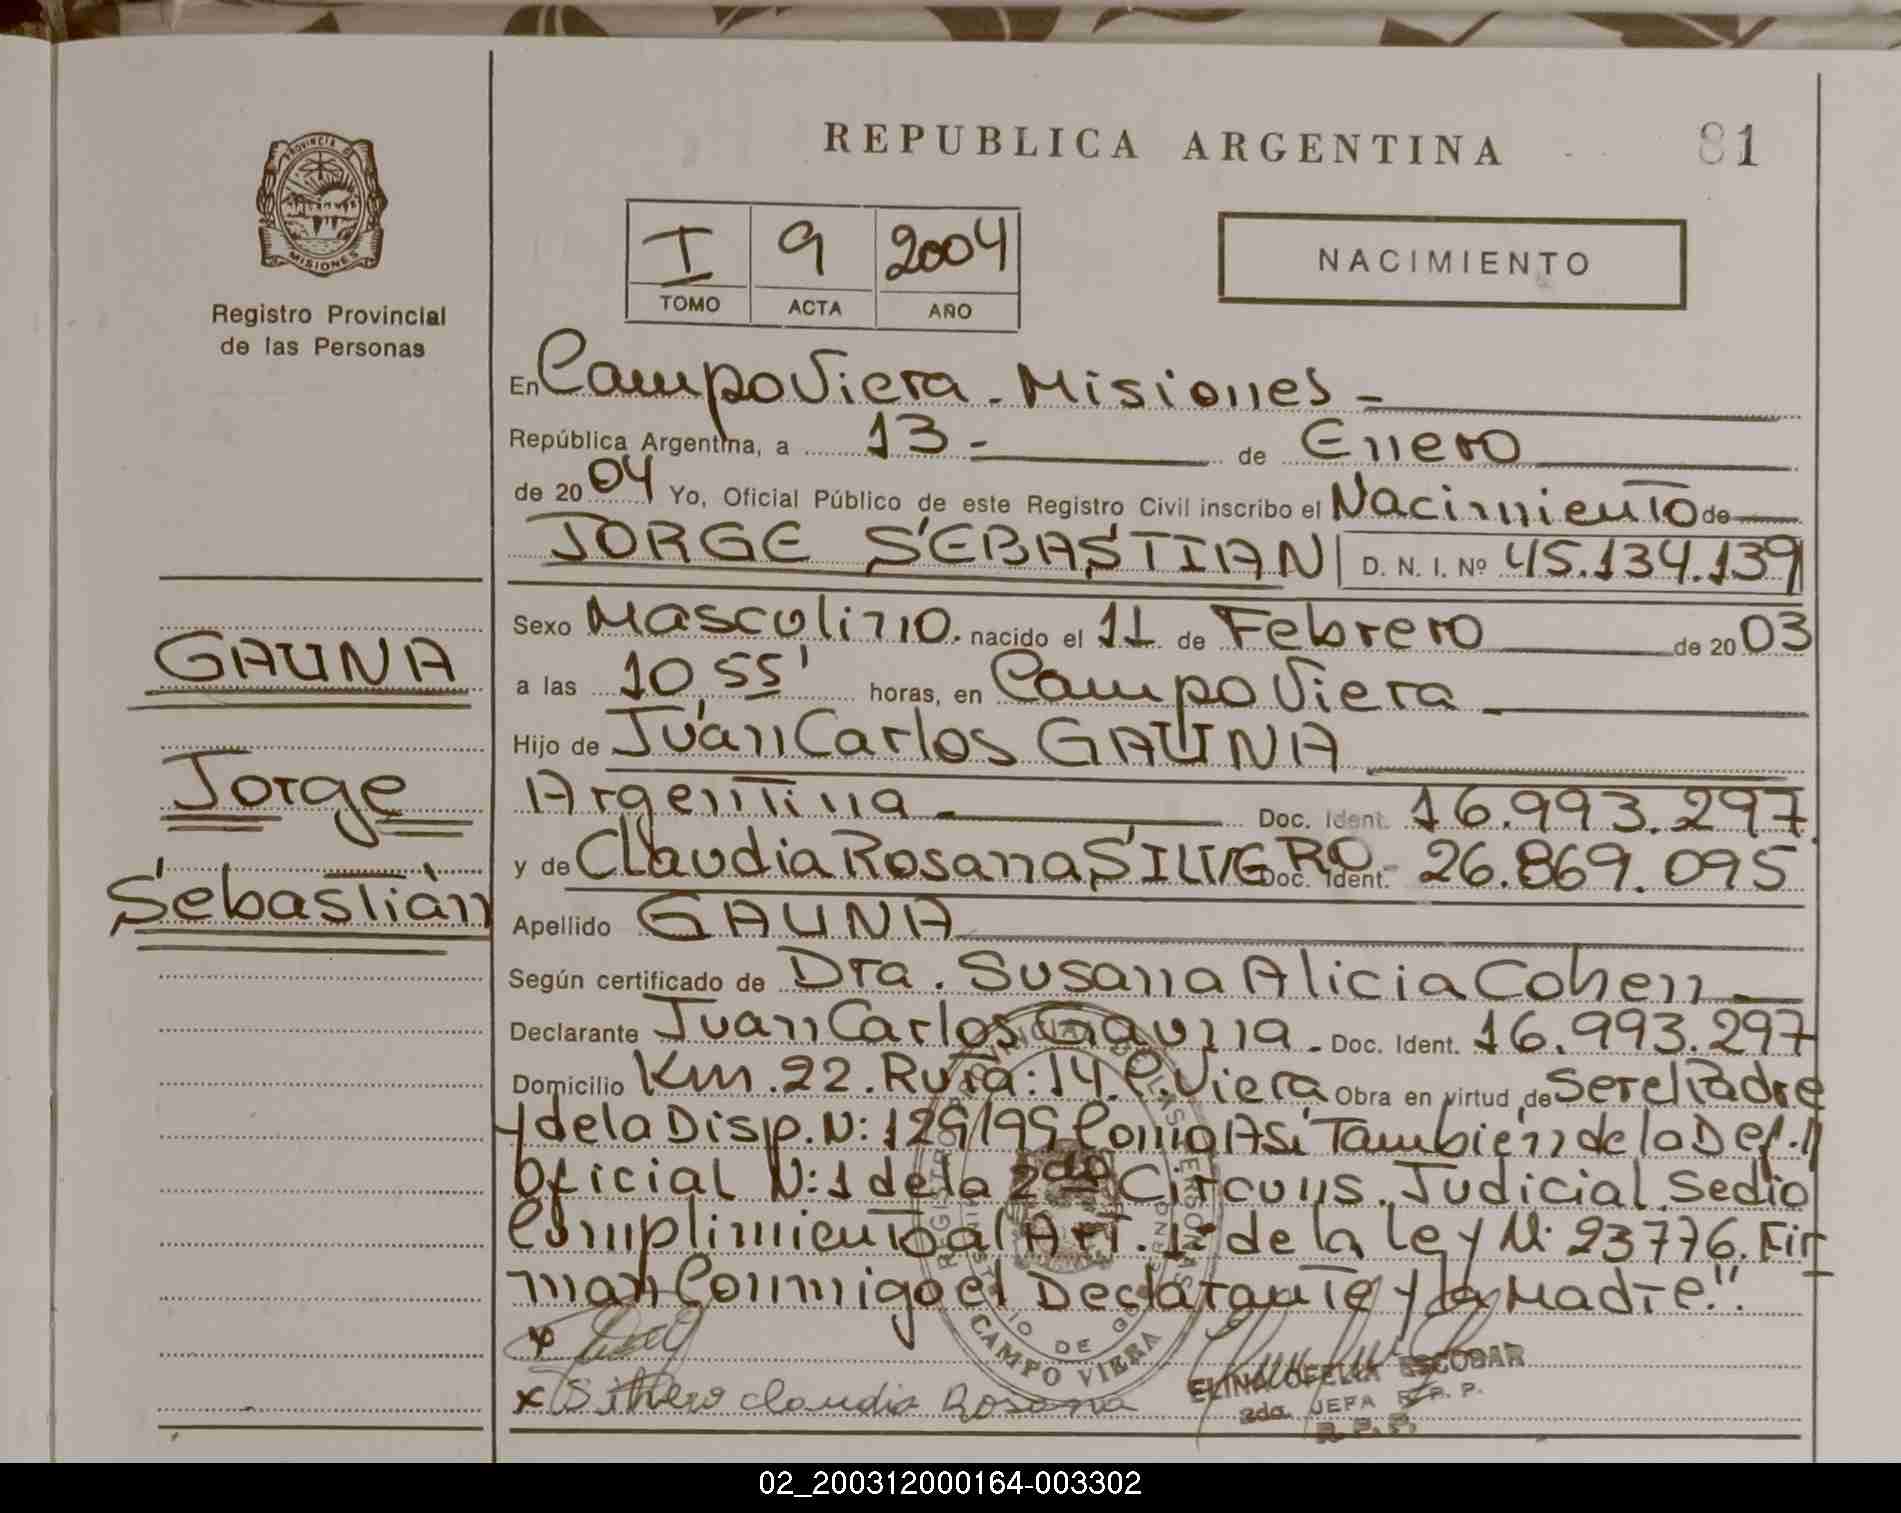 REPUBLICA ARGENTINA
81
PROVINCIA DE
MISIONES
Registro Provincial
de las Personas
I 9 2004
TOMO ACTA AÑO
NACIMIENTO
En Campo Viera - Misiones -
República Argentina, a 13 - de Enero
de 2004 Yo, Oficial Público de este Registro Civil inscribo el Nacimiento de
JORGE SEBASTIAN D. N. I. Nº 45.134.139
Sexo Masculino. nacido el 11 de Febrero de 2003
a las 10,55' horas, en Campo Viera
Hijo de Juan Carlos GAUNA
Argentina Doc. Ident. 16.993.297
y de Claudia Rosana SILVERO Doc. Ident. 26.869.095
Apellido GAUNA
Según certificado de Dra. Susana Alicia Cohen
Declarante Juan Carlos Gauna - Doc. Ident. 16.993.297
Domicilio Km. 22. Ruta: 14. C. Viera Obra en virtud de Ser el Padre
y de la Disp. N: 129/99 Como Asi También de la Def.
Oficial N: 1 de la 2da Circuns. Judicial. Se dio
Cumplimiento al Art. 1º de la Ley N: 23776. Fir
man Conmigo el Declarante y la Madre."
GAUNA
Jorge
Sebastián
x
x Silvero Claudia Rosana
CAMPO VIERA
ELINA OFELIA ESCOBAR
2da. JEFA R. P. P.
R. P. P.
02_200312000164-003302